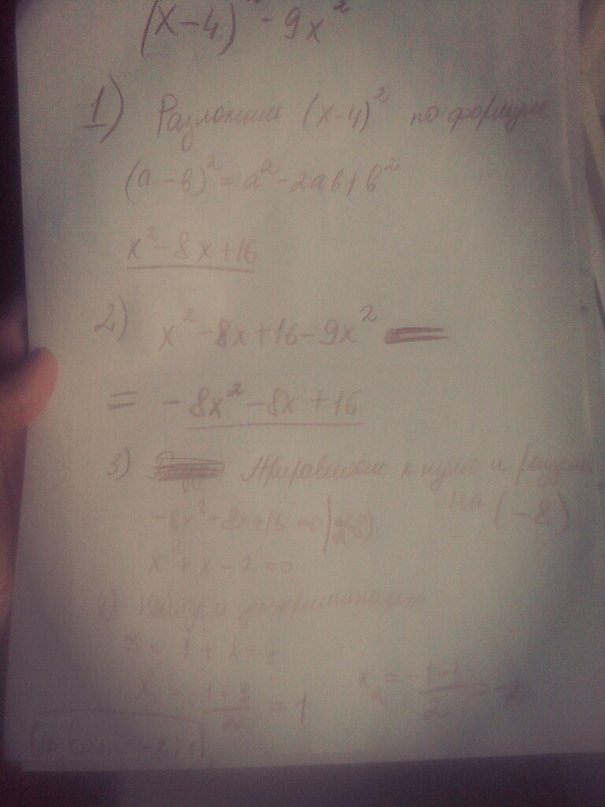 (x-4)² - 9x²
1) Разложим (x-4)² по формуле
(a-b)² = a² - 2ab + b²
x² - 8x + 16
2) x² - 8x + 16 - 9x²
= -8x² - 8x + 16
3) к нулю и
на (-8)
-8x² - 8x + 16 = 0 | :(-8)
x² + x - 2 = 0
4) дискриминант
= 1 + 8 = 9
x₁ = -1+3/2 = 1 x₂ = -1-3/2 = -2
Ответ: -2; 1